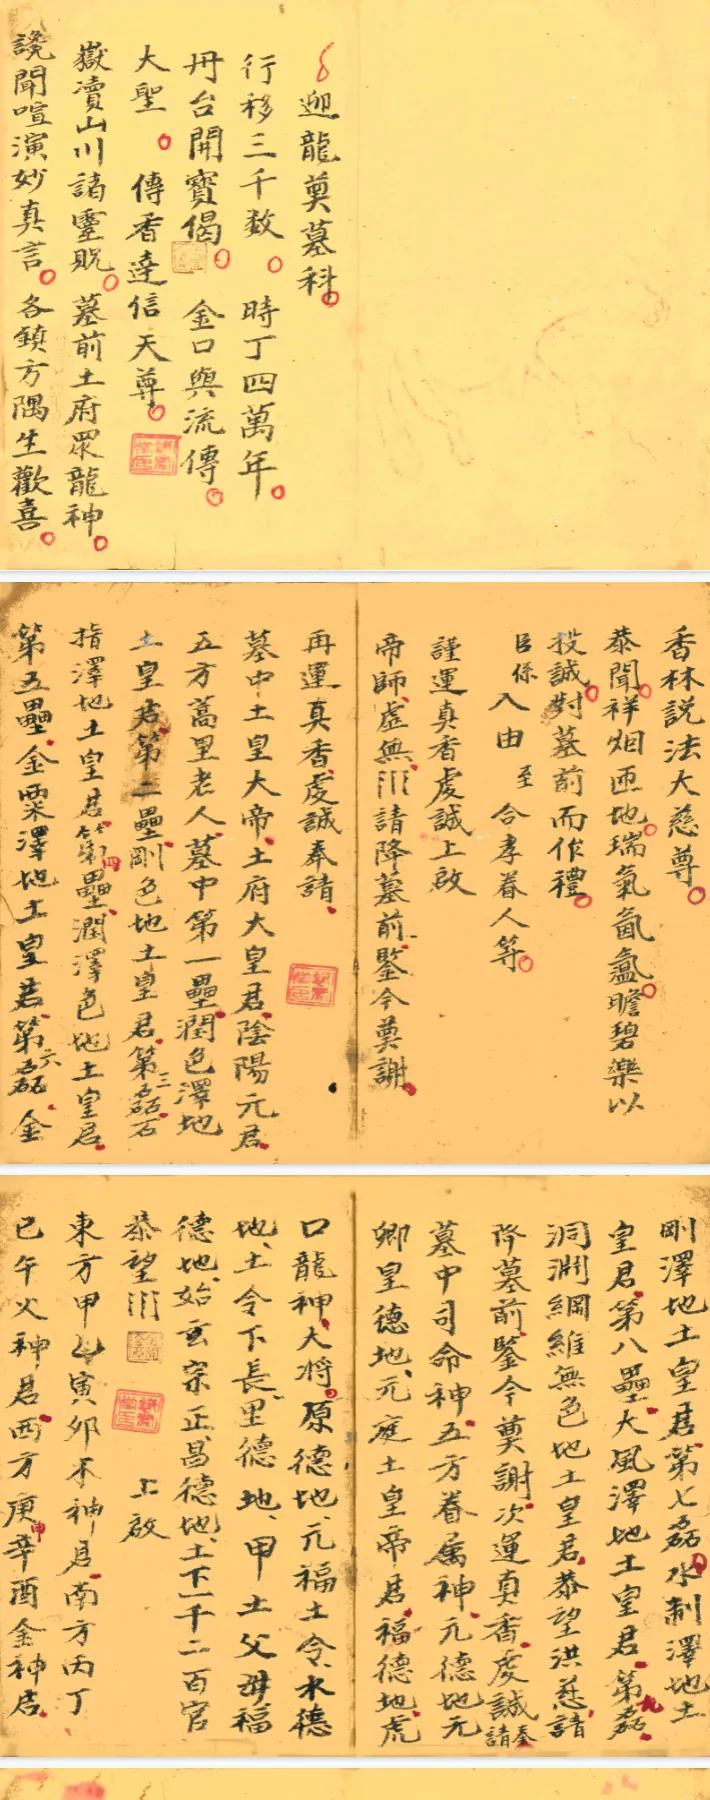 迎龍奠墓科
行移三千数 時丁四萬年
丹台開寶偈 金口與流傳
大聖 傳香達信天尊
嶽瀆山川諸靈貺 墓前土府眾龍神
讒聞喧演妙真言 各鎮方隅生歡喜
香林説法大慈尊
恭聞祥烟匝地瑞氣氤氳瞻碧樂以
投誠對墓前而作禮
臣係入由至 合孝眷人等
謹運真香虔誠上啟
帝師虛無請降墓前鑒今奠謝
再運真香虔誠奉請
墓中土皇大帝土府大皇君陰陽元君
五方蒿里老人墓中第一壘潤色澤地
土皇君第二壘剛色地土皇君第三磊石
指澤地土皇君第四壘潤澤色地土皇君
第五壘金粟澤地土皇君第六磊金
剛澤地土皇君第七磊水制澤地土
皇君第八壘大風澤地土皇君第九磊
洞淵綱維無色地土皇君恭望洪慈請
降墓前鑒今奠謝次運真香虔誠奉請
墓中司命神五方眷属神元德地元
卿皇德地元庭土皇帝君福德地虎
口龍神大將原德地元福土令水德
地土令下長里德地甲土父母福
德地始玄宗正昌德地土下一千二百官
恭望 上啟
東方甲乙寅卯木神君南方丙丁
巳午火神君西方庚申辛酉金神君